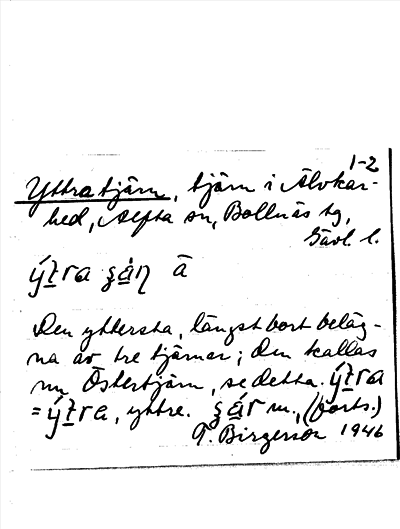 1-2
Yttratjärn, tjärn i Älvkar-
hed, Alfta sn, Bollnäs tg,
Gävl. l.
ýt̲ra ʂá̲ɳ ā
Den yttersta, längst bort beläg-
na av tre tjärnar; den kallas
nu Östertjärn, se detta. ýt̲ra
= ýt̲ra, yttre. ʂá̲r m., (forts.)
T. Birgerson 1946